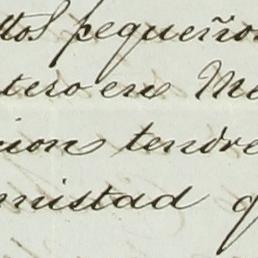 pequeños
tero en Me
cion tendre
mistad q